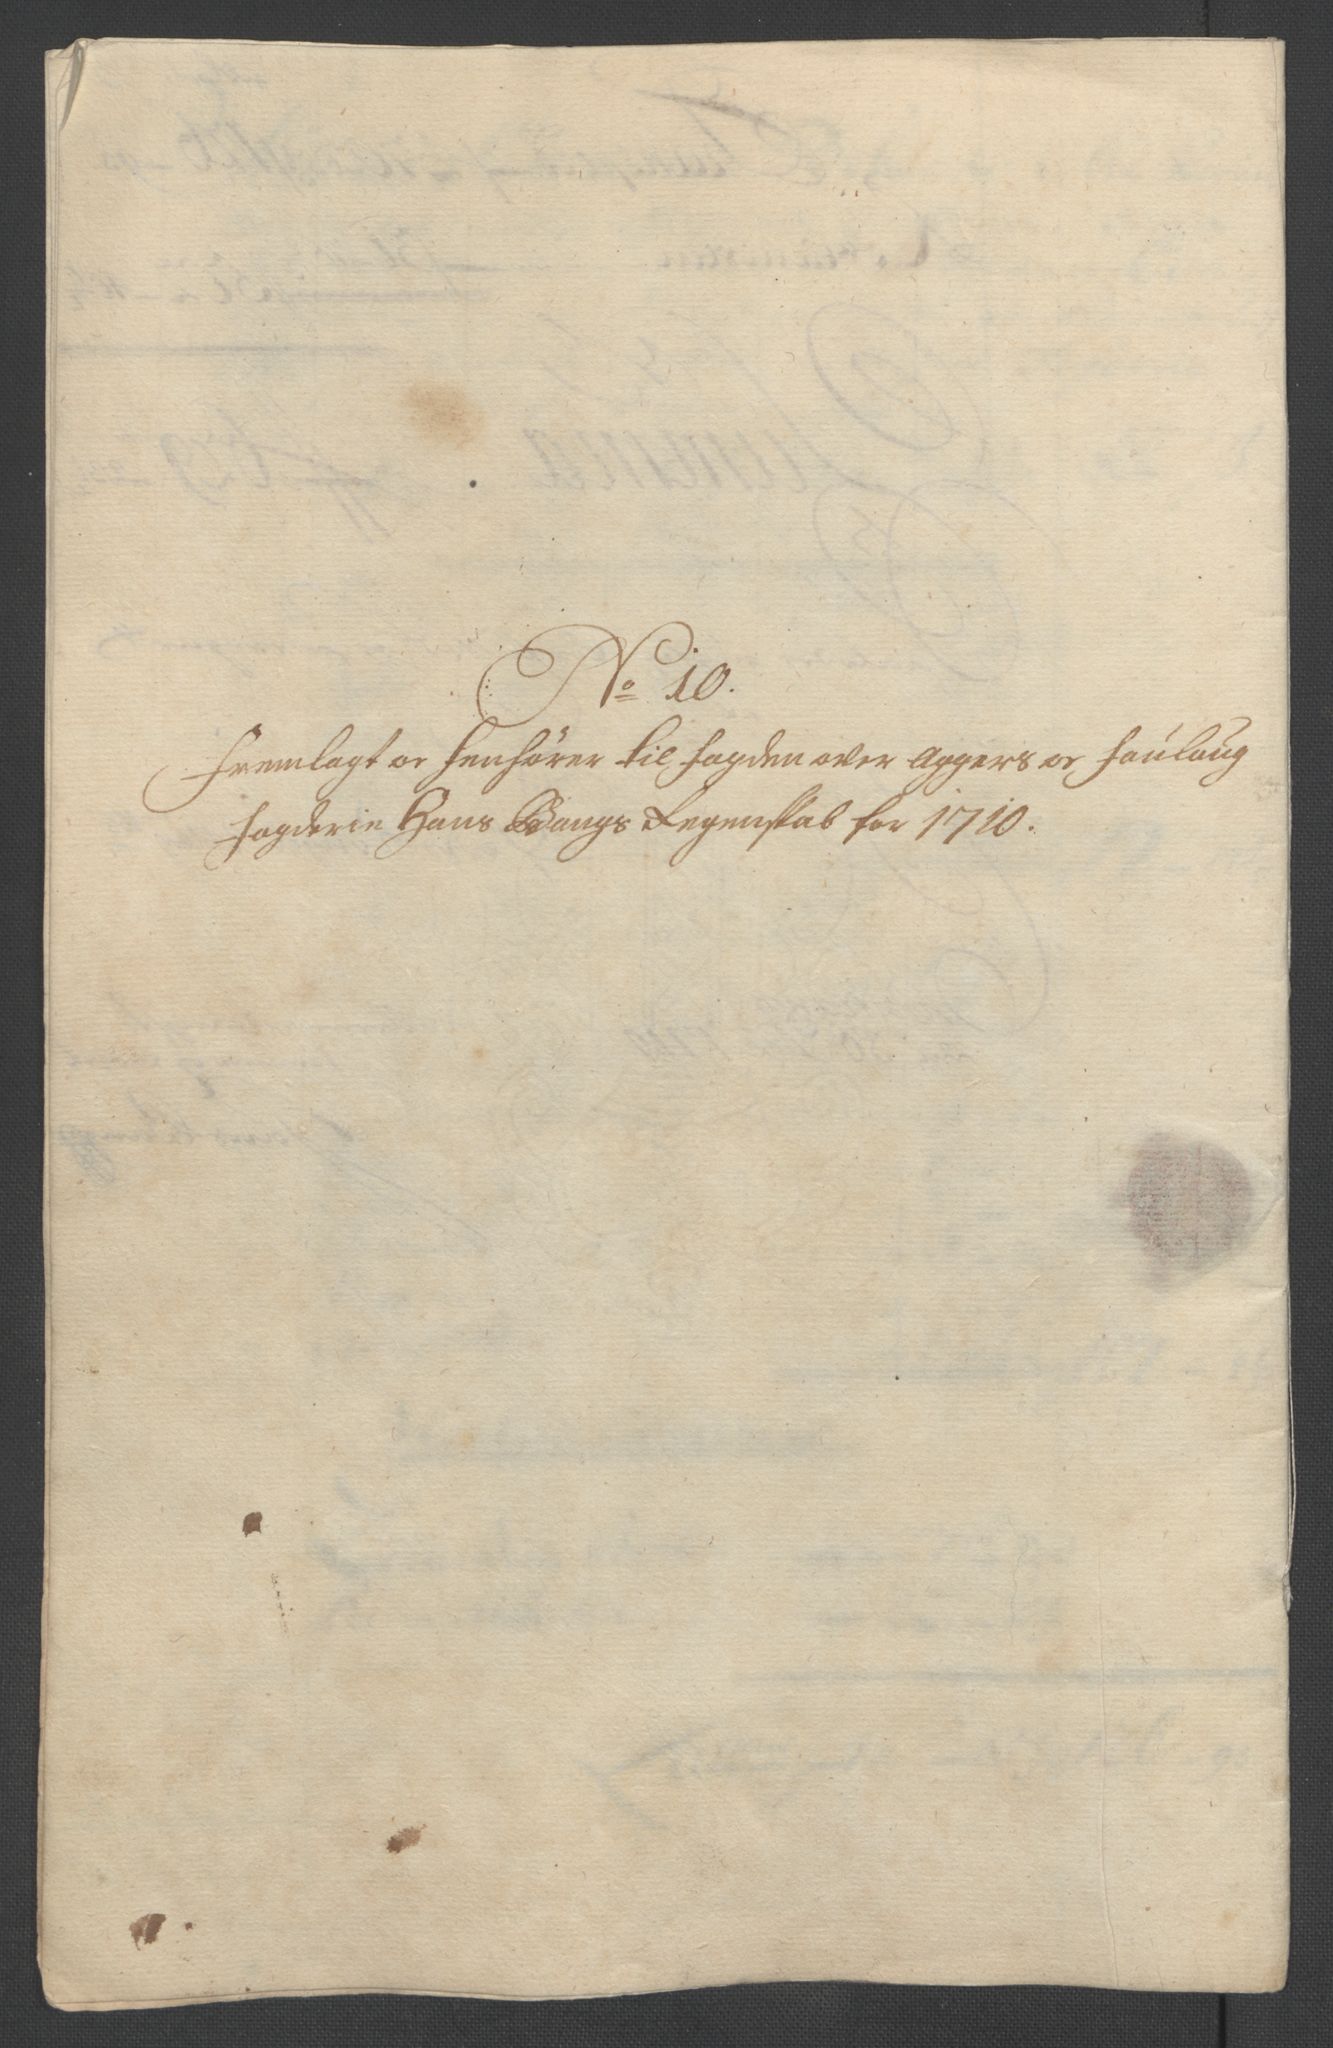 No 10.
Fremlagt oc henhører til fogden over Aggers oc Foulaug
fogderie Hans Bangs Regenskab for 1710.